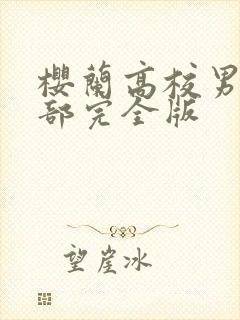 櫻蘭高校男
部完全版
望崖冰